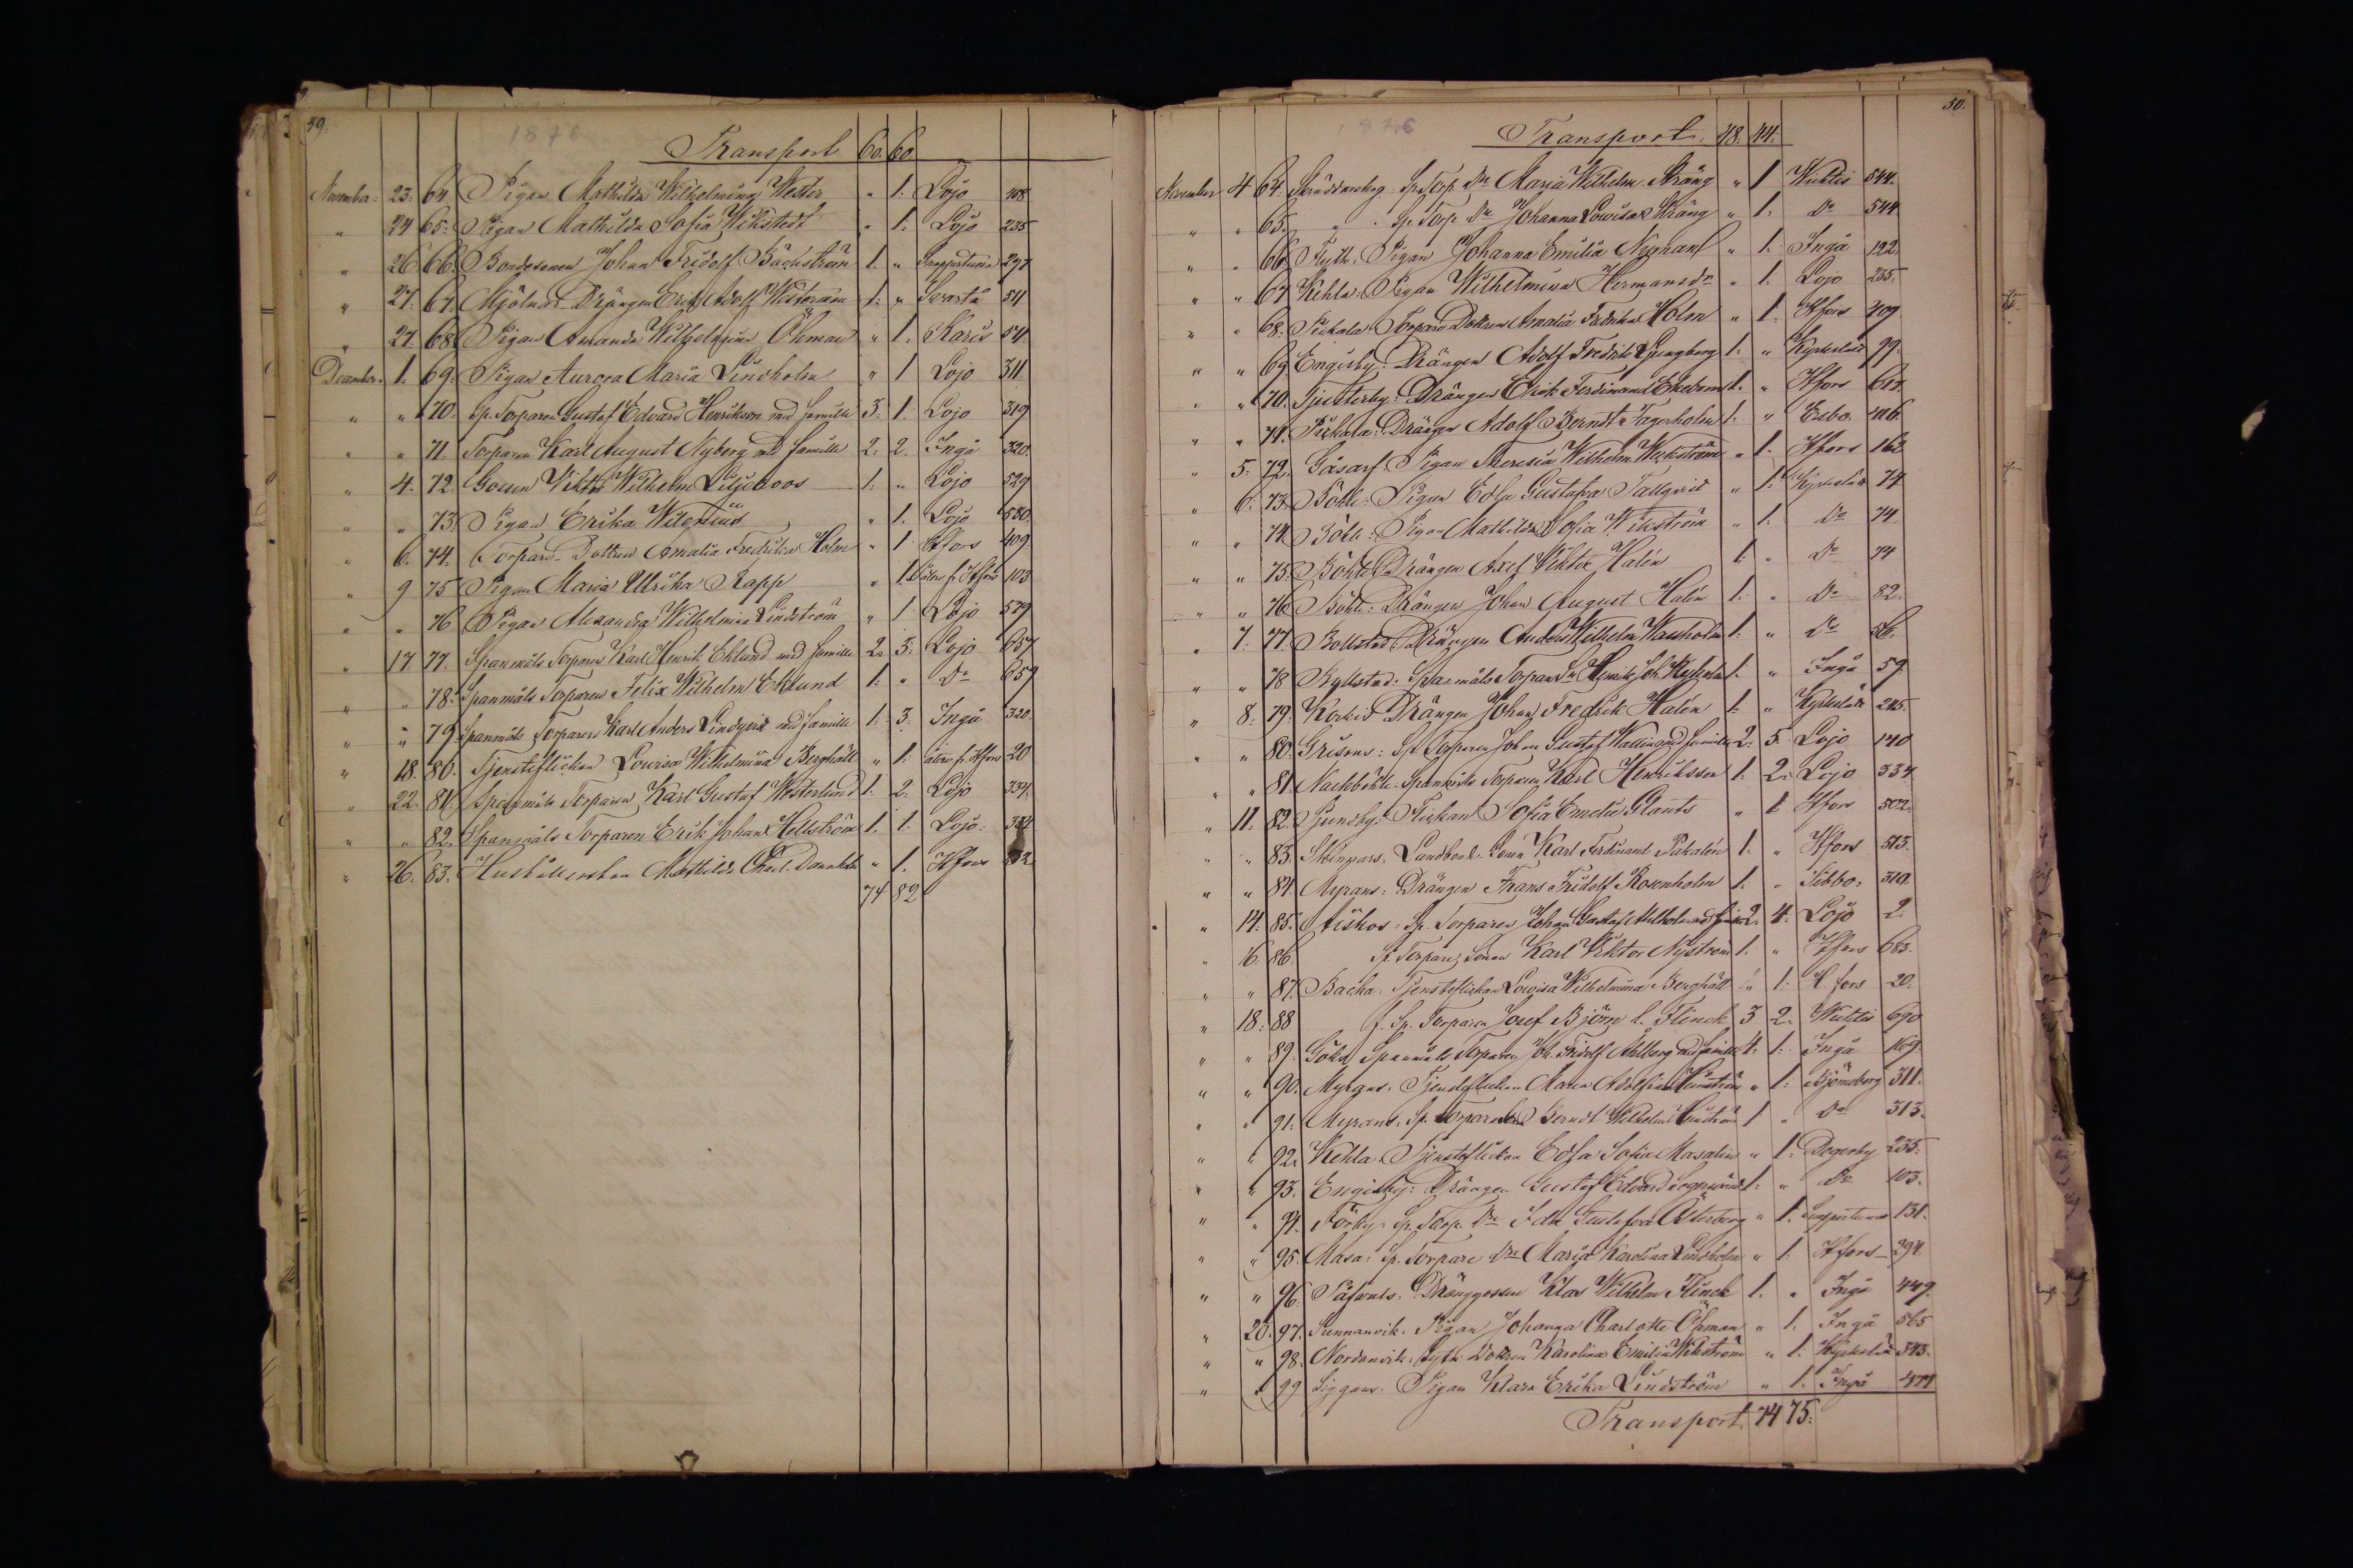 49.
1876
Transport 60. 60
November 23. 64 Pigan Mathilda Wilhelmina Wester " 1. Lojo 408
" 24 65. Pigan Mathilda Sofia Wikstedt " 1. Lojo 235
" 26 66. Bondesonen Johan Fridolf Bäckström 1. " Snappertuna 297
" 27. 67. Mjölnar Drängen Erik Adolf Westeräin 1. " Svartå 54
" 27. 68. Pigan Amanda Wilhelmina Öhman " 1. Karis 54.
December. 1. 69. Pigan Aurora Maria Lindholm " 1 Lojo 311
" " 70. Sp. Torparen Gustaf Edvard Henrikson med familie 3. 1. Lojo 319
" " 71. Torparen Karl August Nyberg md familie 2. 2. Ingå 320.
" 4. 72. Gossen Viktor Wilhelm Liljeroos 1. " Lojo 529
" " 73. Pigan Erika Wilenius " 1. Lojo 530.
" 6. 74. Torpare Dottren Amalia Fredrika Holm " 1 Hfors 409
" 9 75 Pigan Maria Ulrika Rapp " 1. åter fr. Hfors 103
" " 76 Pigan Alexandra Wilhelmina Lindström " 1. Lojo 579
" 17. 77. Spanmåls Torparen Karl Henrik Eklund med familie 2. 3. Lojo 657
" " 78. Spanmåls Torparen Felix Wilhelm Eklund 1. " Do 659
" " 79 Spanmåls Torparen Karl Anders Lindqvist med familie 1. 3. Ingå 320.
" 18. 80. Tjensteflickan Lovisa Wilhelmina Berghäll " 1. åter fr. Hfors 20
" 22. 81. Spanmåls Torparen Karl Gustaf Westerlund 1. 2. Lojo 334.
" " 82. Spanmåls Torparen Erik Johan Hellström 1. 1. Lojo. 334
" 26. 83. Hushållerskan Mathilda Charl. " 1. Hfors 232
74 82
50.
1876
Transport. 48. 44.
November 4 64. Skräddarskog. Sp. Torp. Dr Maria Wilhelm. Sträng " 1 Wichtis 544.
" " 65. " . Sp. Torp. Dr Johanna Lowisa Sträng " 1. Do 544
" " 66. Flyth. Pigan Johanna Emilia Nyman " 1. Ingå 122.
" " 67 Kehla. Pigan Wilhelmina Hermansdr " 1. Lojo 235.
" " 68. Pickala. Torpare Dottren Amalia Fredrika Holm " 1. Hfors 409
" " 69 Engisby. Drängen Adolf Fredrik Ljungberg 1. " Kyrkslätt 99.
" " 70. Tjusterby. Drängen Erik Ferdinand Ekebom 1. " Hfors 617.
" " 71. Pickala. Drängen Adolf Berndt Fagerholm 1. " Esbo. 406
" 5. 72. Gåsarf. Pigan Theresia Wilhelm. Weckström " 1. Hfors 162
" 6. 73. Böhle. Pigan Edla Gustafva Tallqvist " 1. Kyrkslätt 74
" " 74 Böle. Pigan Mathilda Sofia Wikström " 1. Do 74
" " 75. Böhle Drängen Axel Viktor Halin 1. " Do 74
" " 76 Böhle. Drängen Johan August Halin 1. " Do 82.
" 7. 77. Bollstad Drängen Anders Wilhelm 1. " Do 56.
" " 78 Kyllstad. Spanmåls Torpare Henrik Joh. 1. " Ingå 59.
" 8. 79. Korkis Drängen Johan Fredrik Halin 1. " Kyrkslätt 245.
" " 80. Grisans. Sp. Torparen Johan Gustaf Wallin med familie 2. 5. Lojo 140
" " 81. Nackböhle. Spanmåls Torparen Karl Henriksson 1. 2. Lojo 334
" 11. 82. Sjundby. Flickan Sofia Emelie Glants " 1. Hfors 502.
" " 83. Stengars. Landbonde Sonen Karl Ferdinand Pakalén 1. " Hfors 513.
" " 84. Myrans. Drängen Frans Fridolf Rosenholm 1. " Sibbo. 310
" 14. 85. Aiskos. Sp. Torparen Johan Gustaf md familie 2. 4. Lojo 2.
" 16. 86. Sp. Torpare, Sonen Karl Viktor Nyström 1. " Hfors 683.
" " 87. Backa. Tjensteflickan Lowisa Wilhelmina Berghäll " 1. Hfors 20.
" 18. 88 f. Sp. Torparen Josef Björn l. Flinck 3 2. Wichtis 690
" " 89. Göks, Spanmåls Torparen Joh. Fridolf Ahlberg md familie 4. 1. Ingå 169.
" " 90. Myrans. Tjensteflickan Maria Adolfina " 1. Björneborg 311.
" " 91. Myrans. Sp. Torparesonen Berndt Wilhelm 1 " Do 313.
" " 92. Kehla. Tjensteflickan Edla Sofia Masalin " 1. Degerby 235.
" " 93. Engisby. Drängen Gustaf Edvard 1. " Do 103.
" " 94. Förby. Sp. Torp. Dr Ida Gustafva Österberg " 1. Snappertuna 131.
" " 95. Masa: Sp. Torpare Dr Maria Karolina Lindholm " 1. Hfors 394.
" " 96. Påfvals. Dränggossen Klas Wilhelm Flinck 1. " Ingå 449.
" 20. 97. Sunnanvik. Pigan Johanna Charlotte Öhman " 1. Ingå 565
" " 98. Nordanvik. Dottren Karolina Emilia Wikström " 1. Kyrkslätt 543.
" " 99 Siggans. Pigan Klara Erika Lindström " 1. Ingå 471
Transport. 74 75.